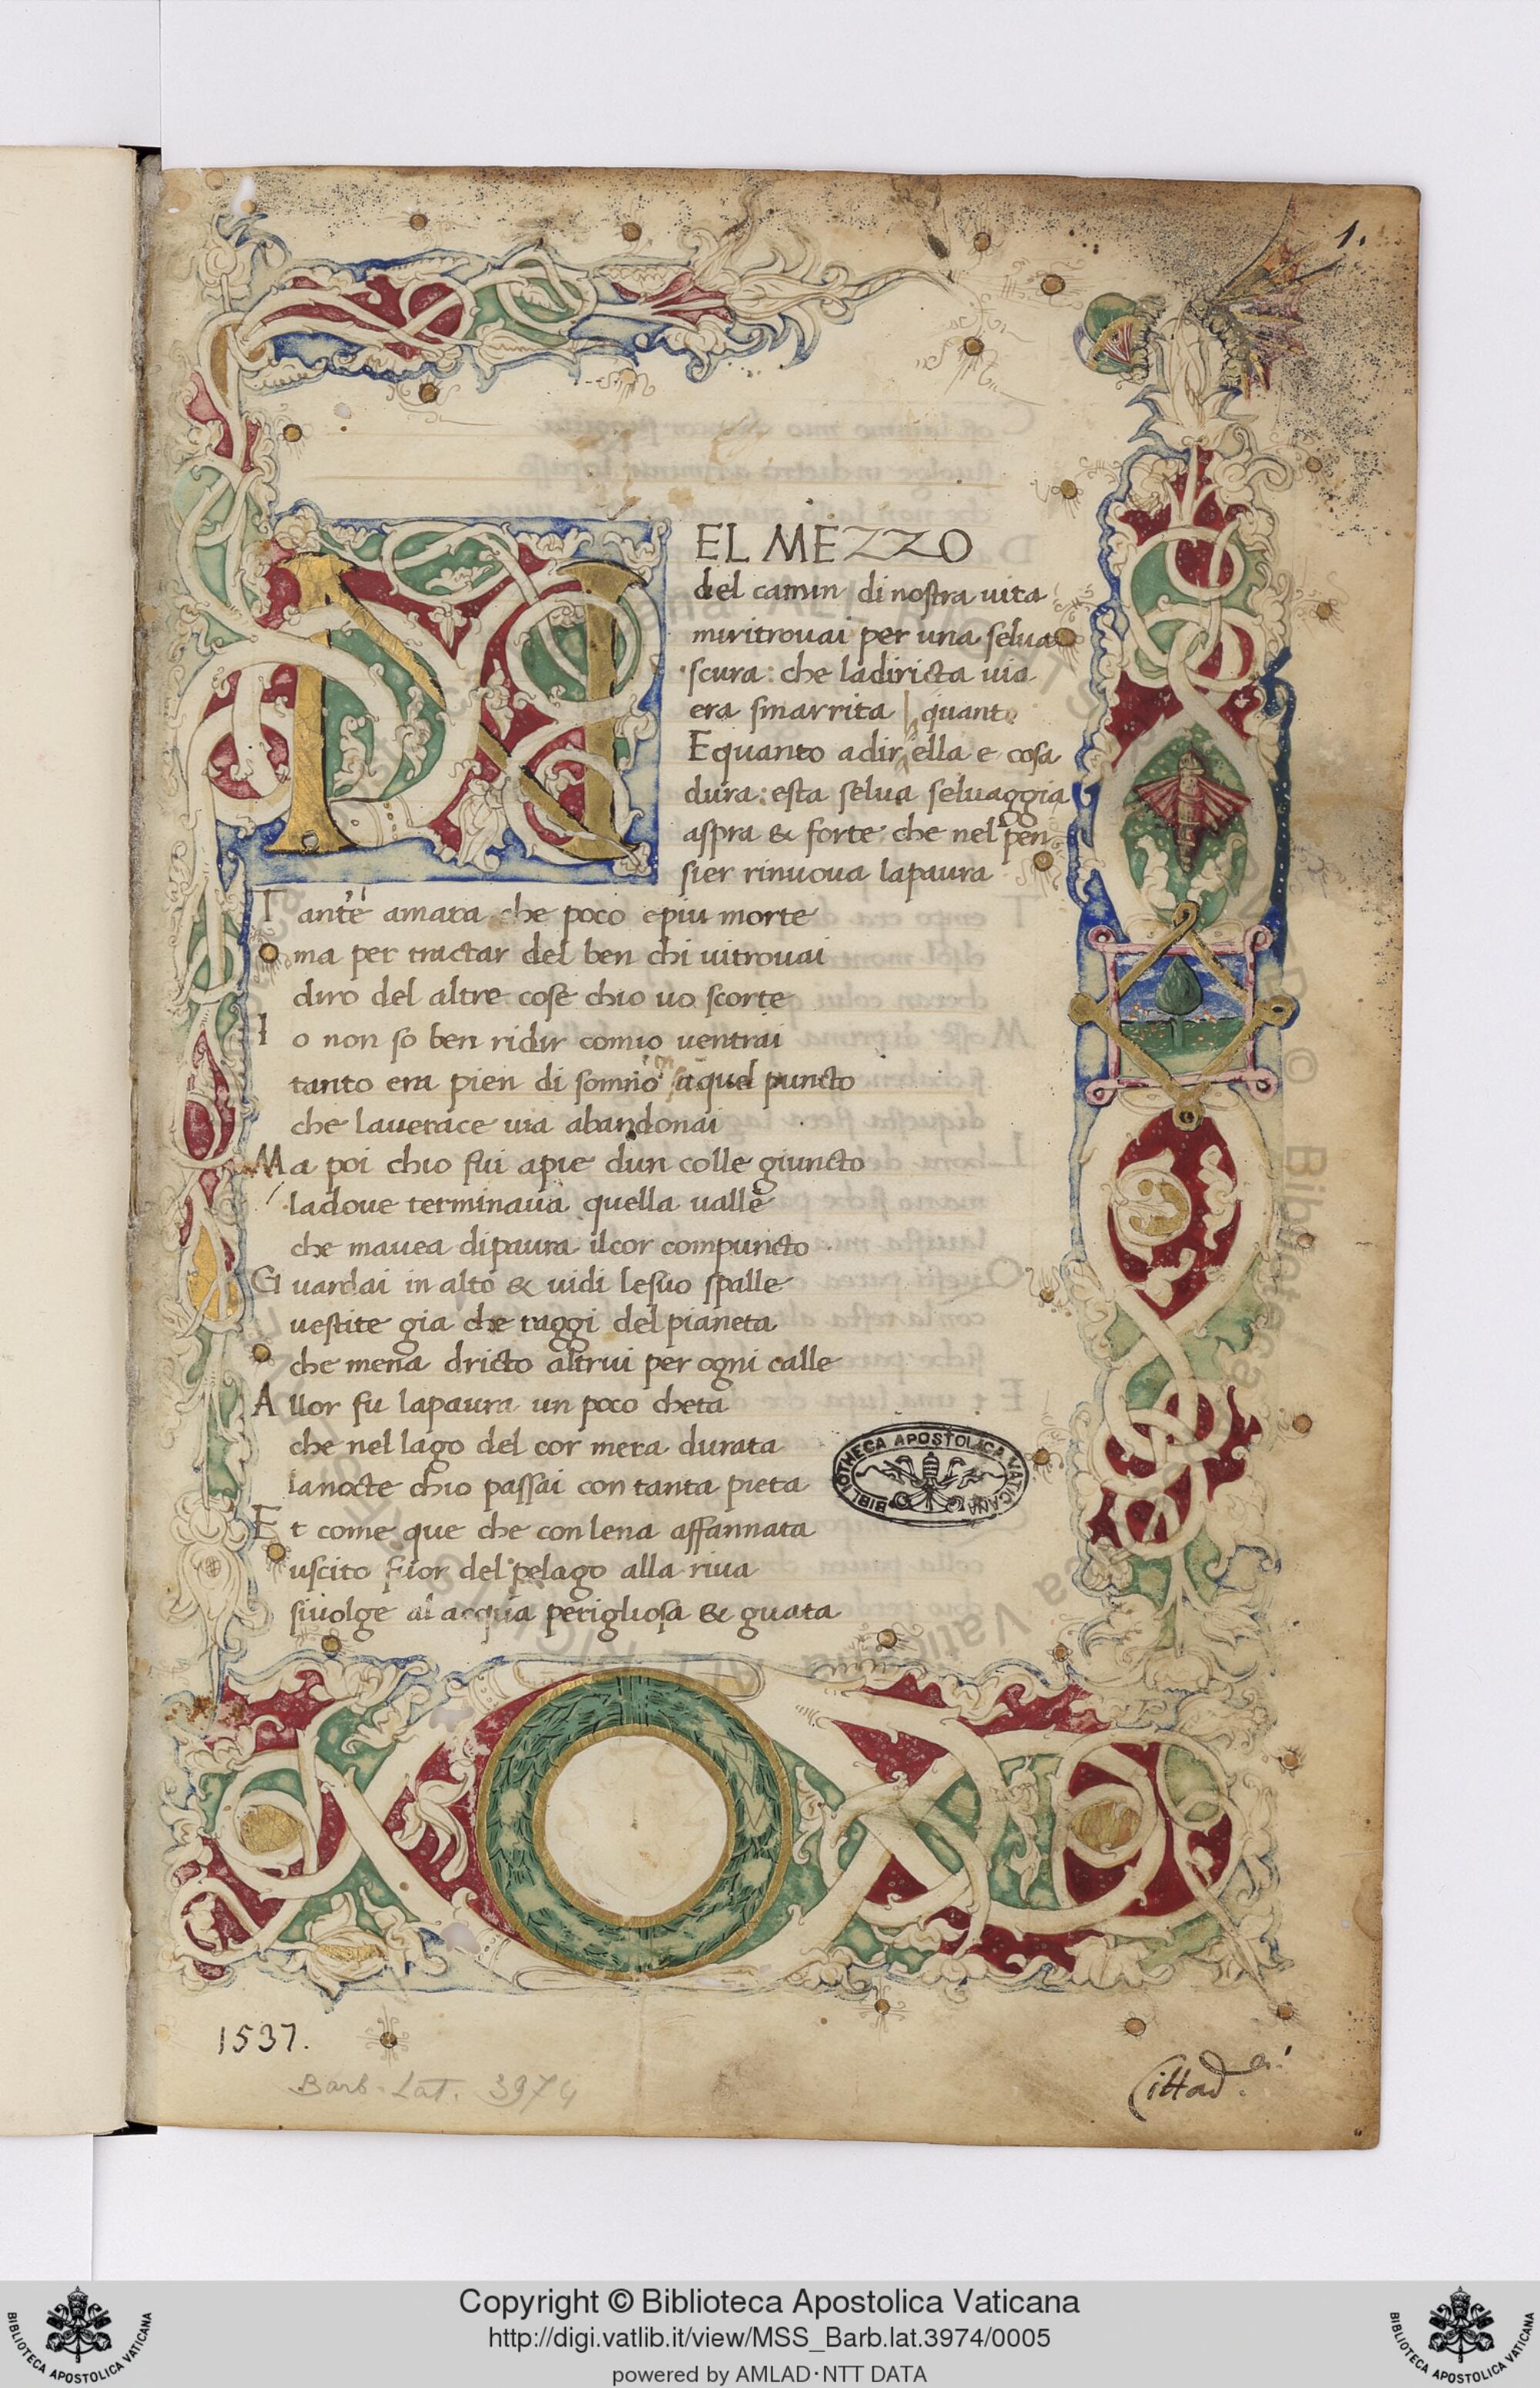 1.
NEL MEZZO
del camin di nostra uita
miritrouai per una selua
scura: che ladiricta uia
era smarrita quanto
Equanto adir ella e cosa
dura: esta selua seluaggia
aspra & forte che nel pen
sier rinuoua lapaura
T ante amara che poco epiu morte
ma per tractar del ben chi uitrouai
diro del altre cose chio uo scorte
I o non so ben ridir comio uentrai
tanto era pien di somno aquel puncto
che lauerace uia abandonai
M a poi chio fui apie dun colle giuncto
ladoue terminaua quella ualle
che mauea dipaura ilcor compuncto
G uardai in alto & uidi lesuo spalle
uestite gia che raggi del pianeta
che mena dricto altrui per ogni calle
A llor fu lapaura un poco cheta
che nel lago del cor mera durata
lanocte chio passai con tanta pieta
E t come que che con lena affannata
uscito fuor del pelago alla riua
siuolge al acqua perigliosa & guata
BIBLIOTHECA APOSTOLICA VATICANA
1537.
Barb. Lat. 3974
Cittad.
Copyright © Biblioteca Apostolica Vaticana
http://digi.vatlib.it/view/MSS_Barb.lat.3974/0005
powered by AMLAD·NTT DATA
BIBLIOTECA APOSTOLICA VATICANA
BIBLIOTECA APOSTOLICA VATICANA